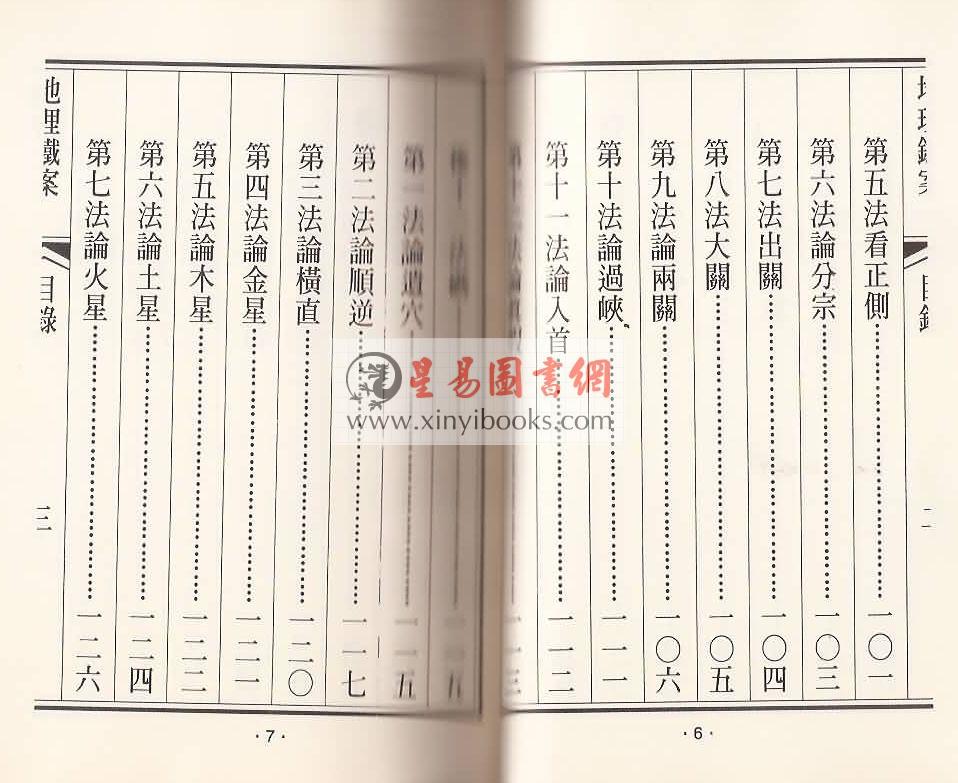 第五法看正側 一〇一
第六法論分宗 一〇三
第七法出關 一〇四
第八法大關 一〇五
第九法論兩關 一〇六
第十法論過峽 一一一
第十一法論入首 一一二
一一三
·6·
二
第一法論 穴 一一五
第二法論順逆 一一七
第三法論橫直 一二〇
第四法論金星 一二一
第五法論木星 一二二
第六法論土星 一二四
第七法論火星 一二六
地理鐵案
目錄
三
·7·
星易圖書網
www.xinyibooks.com